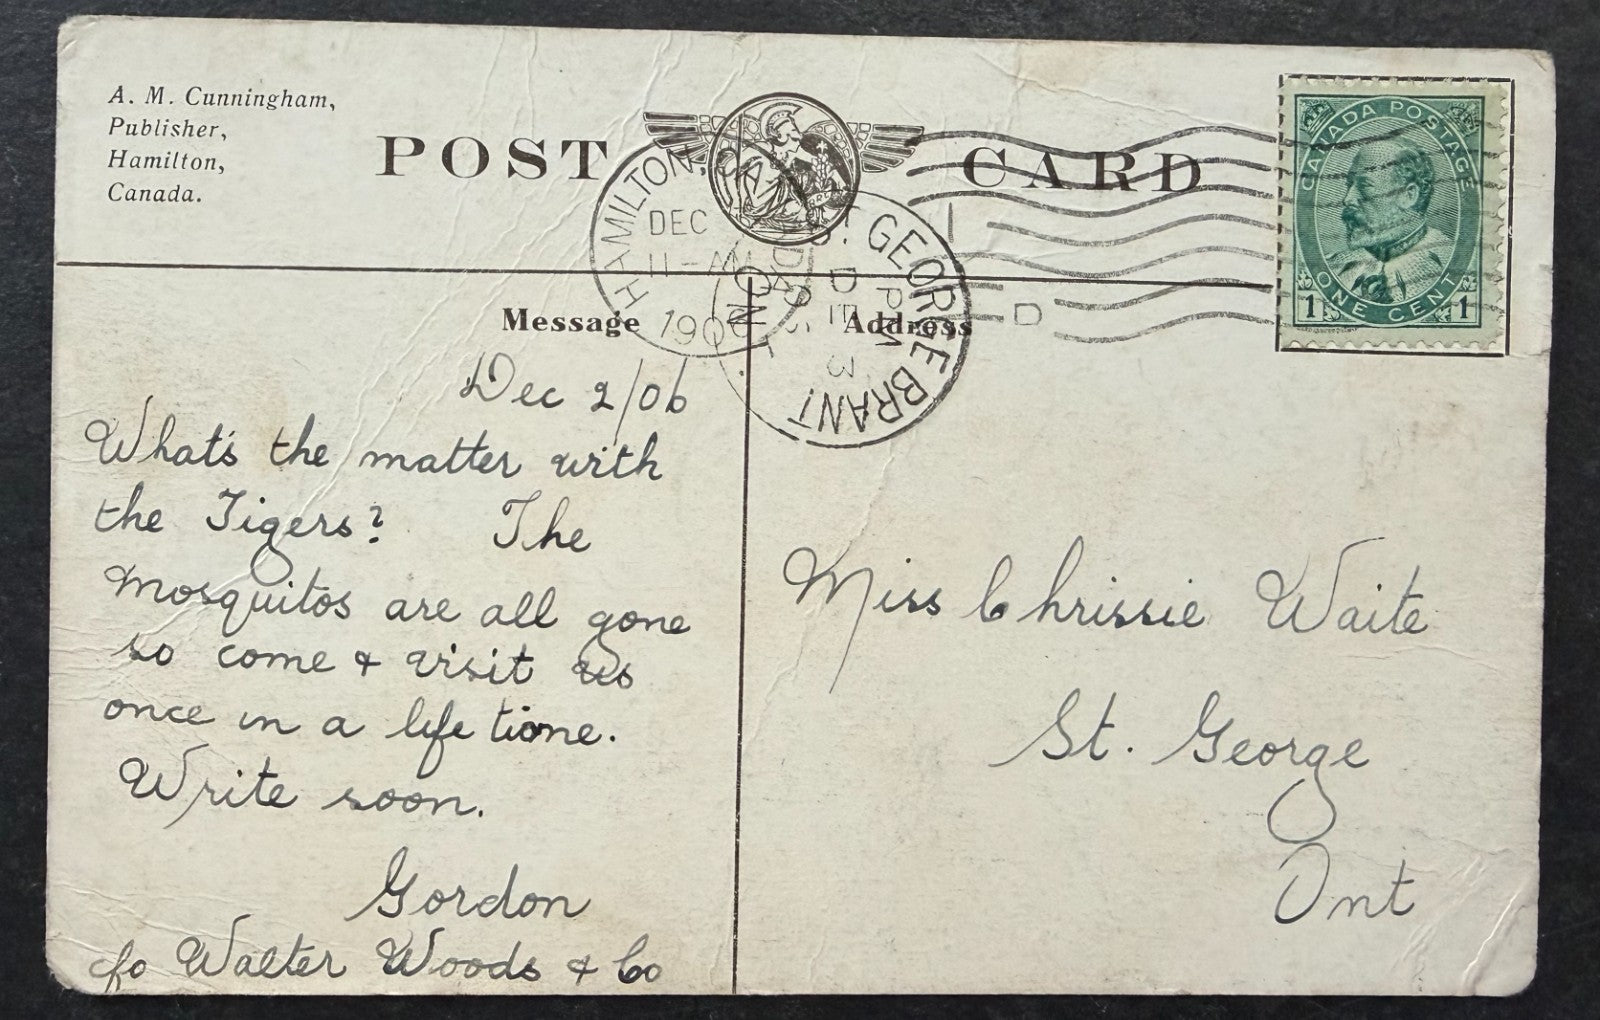 A. M. Cunningham,
Publisher,
Hamilton,
Canada.
POST CARD
CANADA POSTAGE
ONE CENT
1 1
HAMILTON, CANADA
DEC
11-AM
190
ST. GEORGE BRANT
PM
DE 3
ONT.
D
Message
Address
Dec 2/06
What's the matter with
the Tigers? The
Mosquitos are all gone
so come & visit us
once in a life time.
Write soon.
Gordon
c/o Walter Woods & Co
Miss Chrissie Waite
St. George
Ont